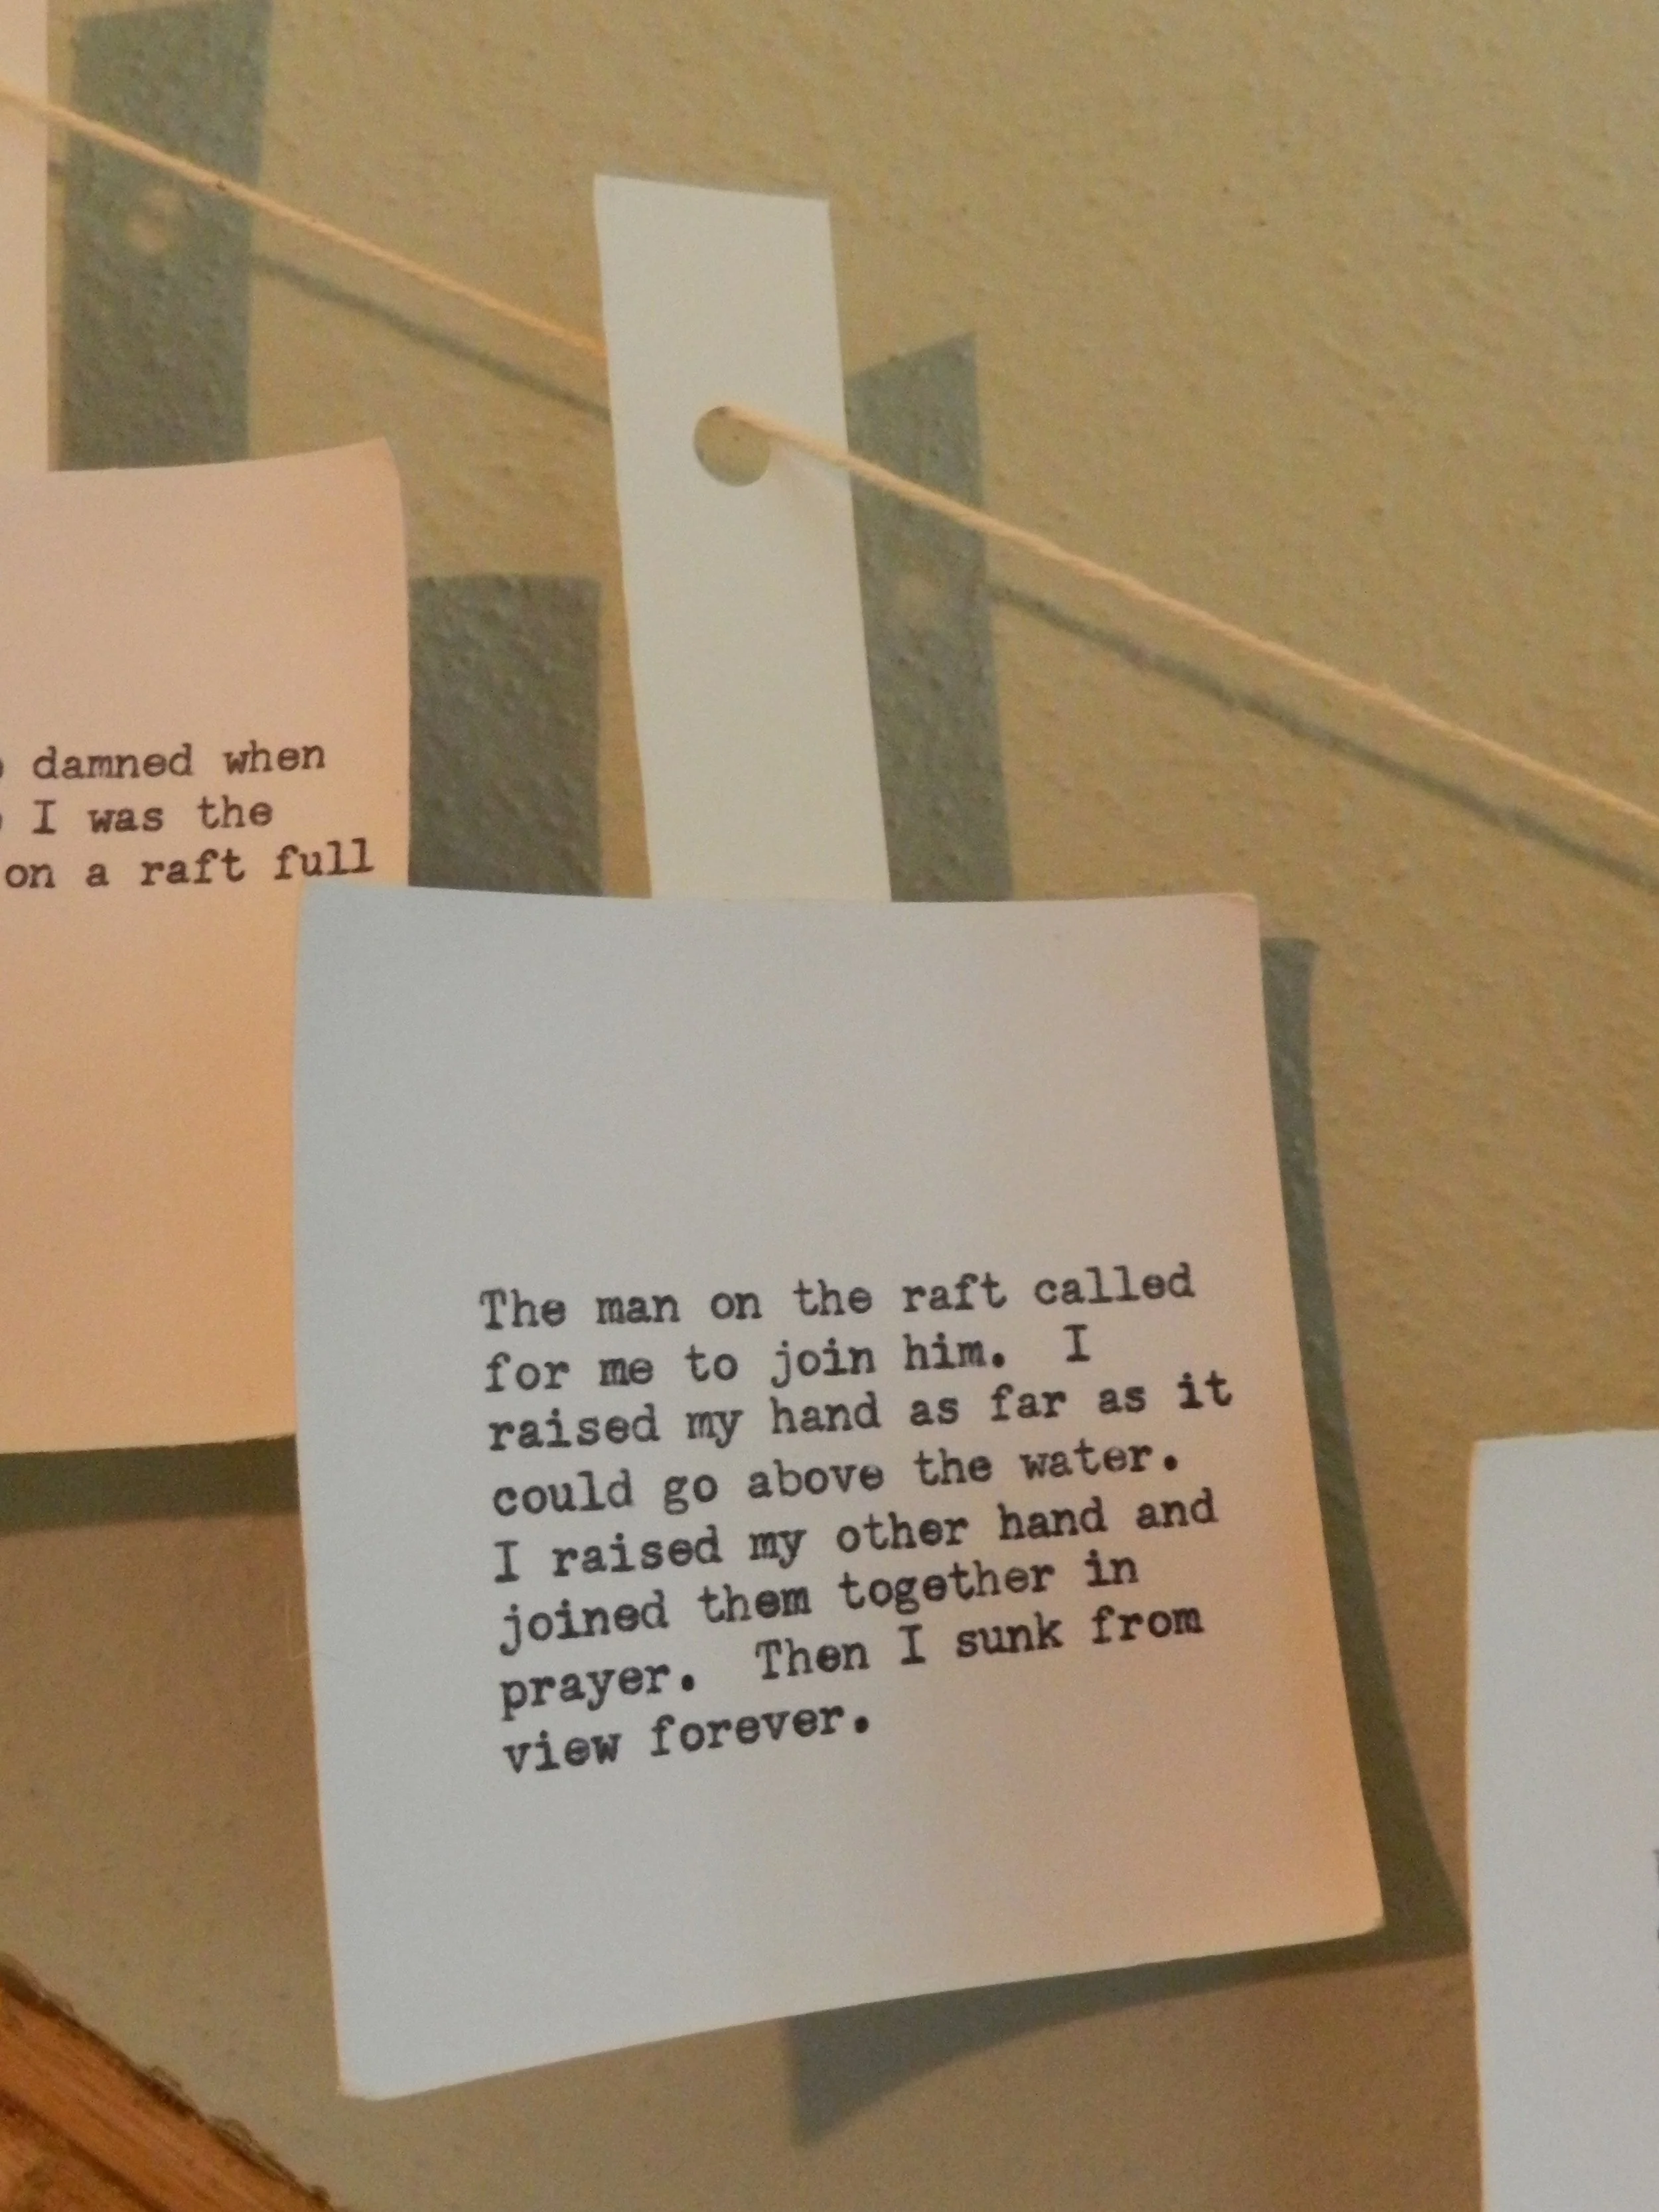 damned when
I was the
on a raft full
The man on the raft called
for me to join him.  I
raised my hand as far as it
could go above the water.
I raised my other hand and
joined them together in
prayer.  Then I sunk from
view forever.